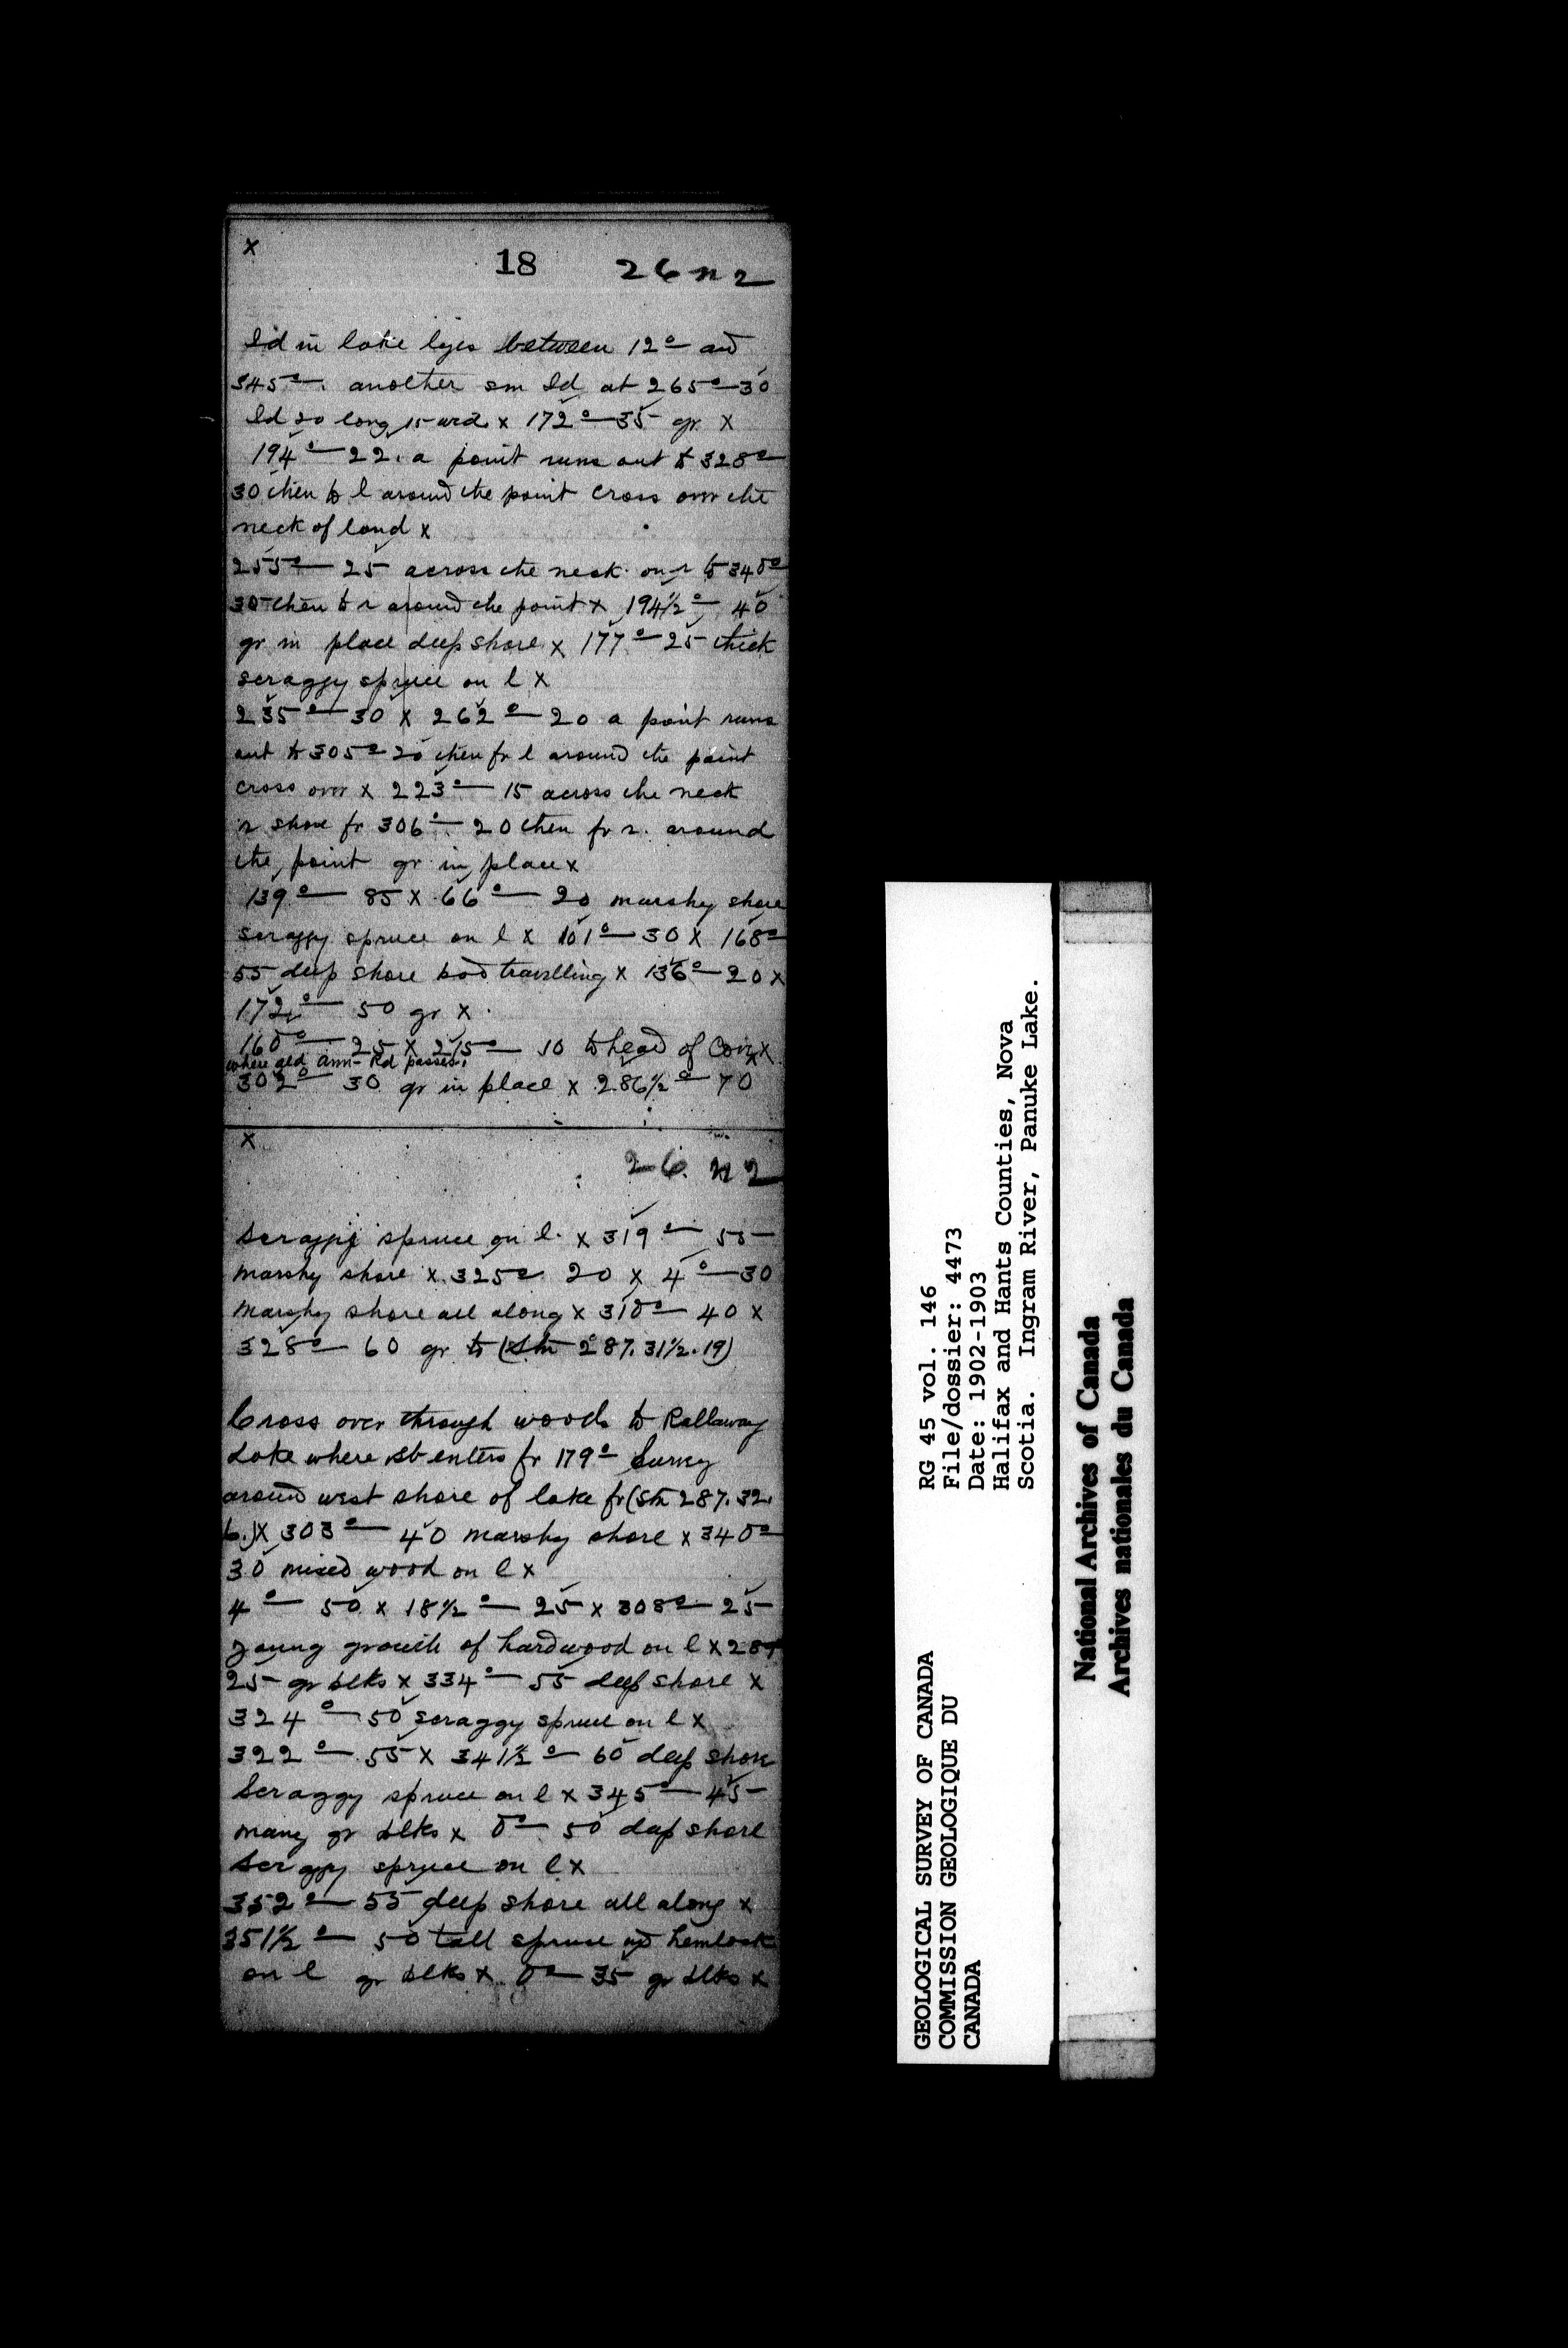 x
18 26 n 2
Id in lake lyes between 12° and
345°. another sm Id at 265°—30
Id 20 long 15 wd x 172°—35 gr x
194°—22. a point runs out to 328°
30 then to l around the point cross over the
neck of land x
255°—25 across the neck on r to 340°
30 then to r around the point x 194½°—40
gr in place deep shore x 177°—25 thick
scraggy spruce on l x
235°—30 x 262°—20 a point runs
out to 305° 20 then fr l around the point
cross over x 223°—15 across the neck
r shore fr 306°—20 then fr r. around
the point gr in place x
139°—85 x 66°—20 marshy shore
scraggy spruce on l x 101°—30 x 168°
55 deep shore bad travelling x 136°—20 x
172°—50 gr x
160°—25 x 215°—10 to head of Cove x
where old Ann- Rd passes.
302°—30 gr in place x 286½°—70
x
26 n 2
Scraggy spruce on l. x 319°—55
marshy shore x 325° 20 x 4°—30
marshy shore all along x 310°—40 x
328°—60 gr to (Stn 287. 31½. 19)
Cross over through woods to Rollaway
Lake where sb enters fr 179° Survey
around west shore of lake fr (Stn 287. 32.
6.) x 303°—40 marshy shore x 340°
30 mixed wood on l x
4°—50 x 18½°—25 x 308°—25
young growth of hardwood on l x 287
25 gr blks x 334°—55 deep shore x
324°—50 scraggy spruce on l x
322°—55 x 341½°—60 deep shore
Scraggy spruce on l x 345°—45
many gr blks x 0°—50 deep shore
Scraggy spruce on l x
352°—55 deep shore all along x
351½°—50 tall spruce and hemlock
on l gr blks x 0°—35 gr blks x
GEOLOGICAL SURVEY OF CANADA
COMMISSION GEOLOGIQUE DU
CANADA
RG 45 vol. 146
File/dossier: 4473
Date: 1902-1903
Halifax and Hants Counties, Nova
Scotia. Ingram River, Panuke Lake.
National Archives of Canada
Archives nationales du Canada